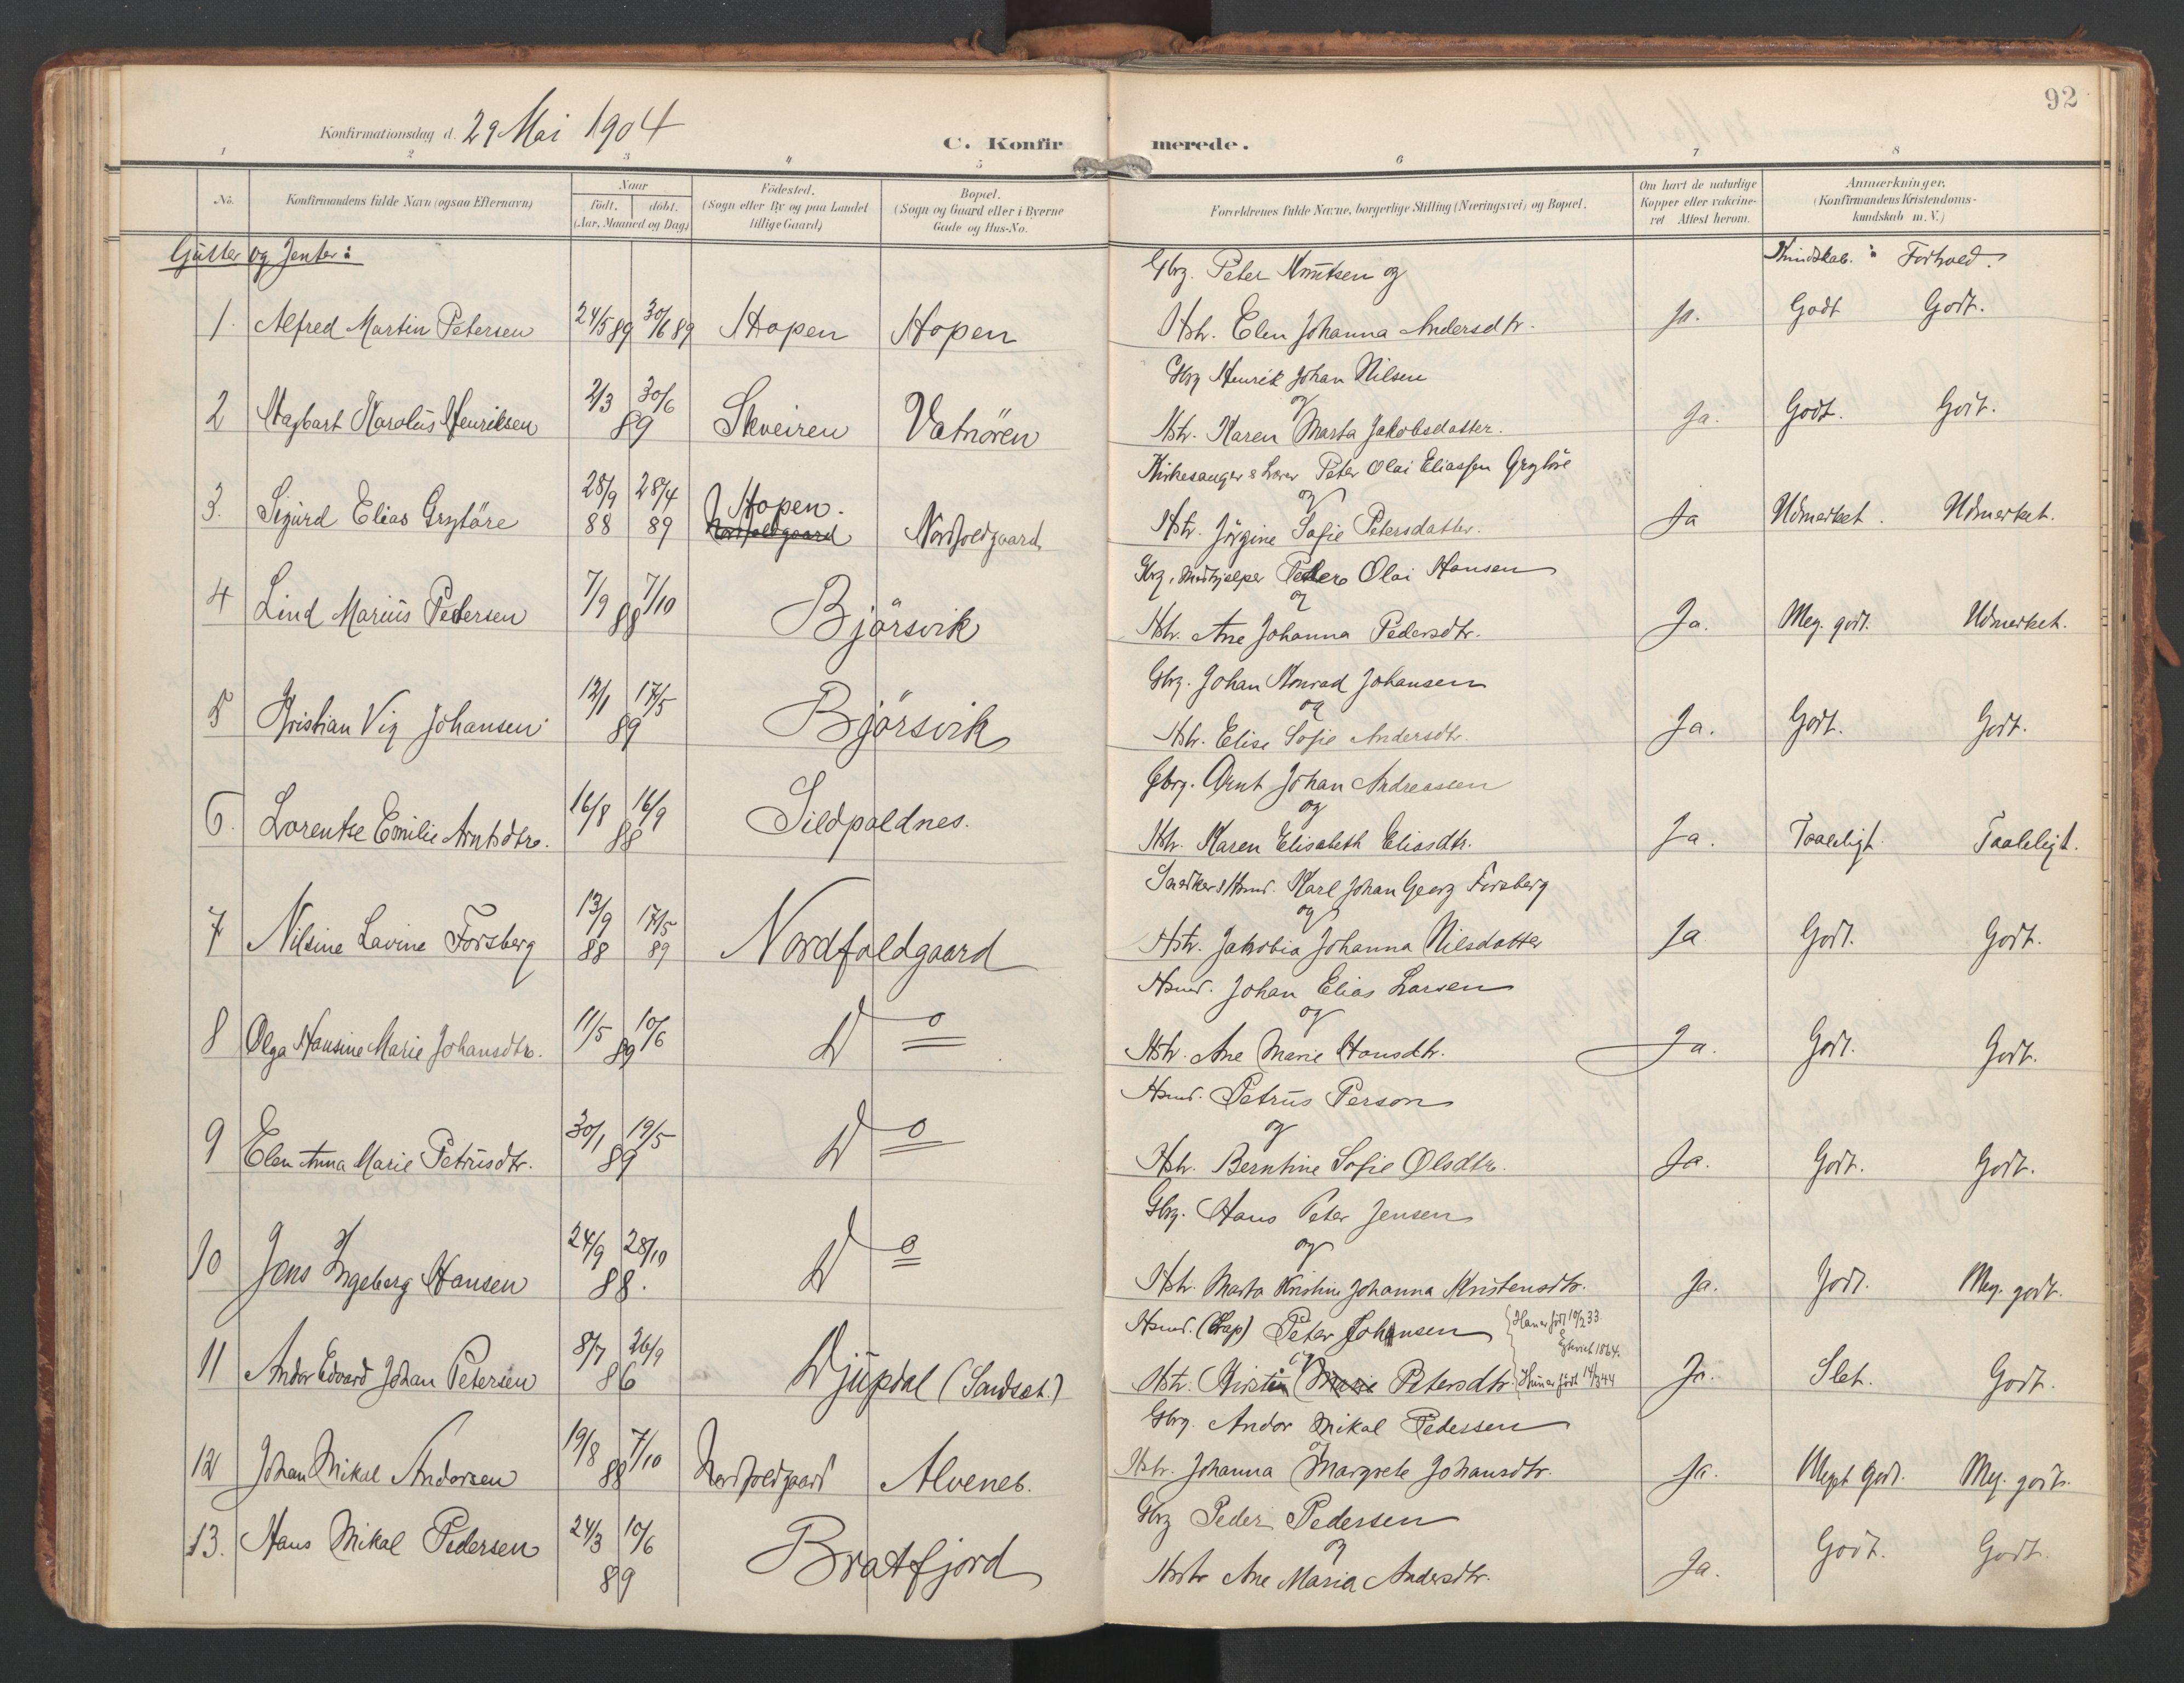 92
Konfirmationsdag d. 29 Mai 1904
C. Konfirmerede.
1 2 3 4 5 6 7 8
No. Konfirmandens fulde Navn (ogsaa Efternavn) Naar født, døbt. (Aar, Maaned og Dag) Födested. (Sogn eller By og paa Landet tillige Gaard) Bopæl. (Sogn og Gaard eller i Byerne Gade og Hus-No. Forældrenes fulde Navne, borgerlige Stilling (Næringsvei) og Bopæl. Om havt de naturlige Kopper eller vakcineret Attest herom. Anmærkninger, (Konfirmandens Kristendomskundskab m. V.)
Gutter og Jenter: Kundskab. Forhold.
Gbrg. Peter Knutsen og
1. Alfred Martin Petersen 24/5 89 30/6 89 Hopen Hopen Hstr. Elen Johanna Andersdtr. Ja. Godt Godt.
Gbrg Henrik Johan Nilsen
og
2 Hagbart Karolus Henriksen 2/3 30/6 89 Skveiren Vatnören Hstr. Karen Marta Jakobsdatter. Ja. Godt. Godt.
Kirkesanger & Lærer Peter Olai Eliassen Grytöre
og
3. Sigurd Elias Grytöre 28/9 88 28/4 89 Hopen. Nordfoldgaard Nordfoldgaard Hstr. Jörgine Sofie Petersdatter. Ja Udmerket. Udmerket.
Gbrg, Medhjelper Peder Olai Hansen
og
4 Lind Marius Pedersen 7/9 7/10 88 Björsvik Hstr. Ane Johanna Pedersdtr. Ja. Meg. godt. Udmerket.
Gbrg. Johan Konrad Johansen
og
5 Kristian Vig Johansen 12/1 17/5 89 Björsvik Hstr. Elise Sofie Andersdtr. Ja. Godt. Godt.
Gbrg. Arnt Johan Andreassen
og
6. Lorentze Emilie Arntsdtr. 16/8 16/9 88 Sildpoldnes. Hstr. Karen Elisabeth Eliasdtr. Ja. Taaleligt. Taaleligt.
Snedker & Hsmd. Karl Johan Georg Forsberg
og
7 Nilsine Lavine Forsberg 13/9 88 17/5 89 Nordfoldgaard Hstr. Jakobia Johanna Nilsdatter Ja Godt. Godt.
Hsmd. Johan Elias Larsen
og
8 Olga Hansine Marie Johansdtr. 11/5 10/6 89 Do Hstr. Ane Marie Hansdtr. Ja. Godt. Godt.
Hsmd. Petrus Person
og
9 Elen Anna Marie Petrusdtr. 30/1 19/5 89 Do Hstr. Berntine Sofie Olsdtr. Ja. Godt. Godt.
Gbrg. Hans Peter Jensen
og
10 Jens Ingeberg Hansen 24/9 28/10 88. Do Hstr. Marta Kristine Johanna Kristensdtr. Ja. Godt. Meg. godt.
Hsmd. (Lap) Peter Johansen Han er född 10/2 33.
1864.
og
11 Andor Edvard Johan Petersen 8/7 26/9 86 Djupdal (Sandset.) Hstr. Kirsten Marie Petersdtr. Hun er född 14/3 44 Ja. Slet. Godt.
Gbrg. Andor Mikal Pedersen
og
12 Johan Mikal Andorsen 19/8 7/10 88 Nordfoldgaard Alvenes. Hstr. Johanna Margrete Johansdtr. Ja. Meget godt. Meg. godt.
Gbrg Peder Pedersen
og
13. Hans Mikal Pedersen 24/3 10/6 89 Bratfjord Hstr Ane Maria Andersdtr. Ja. Godt. Godt.